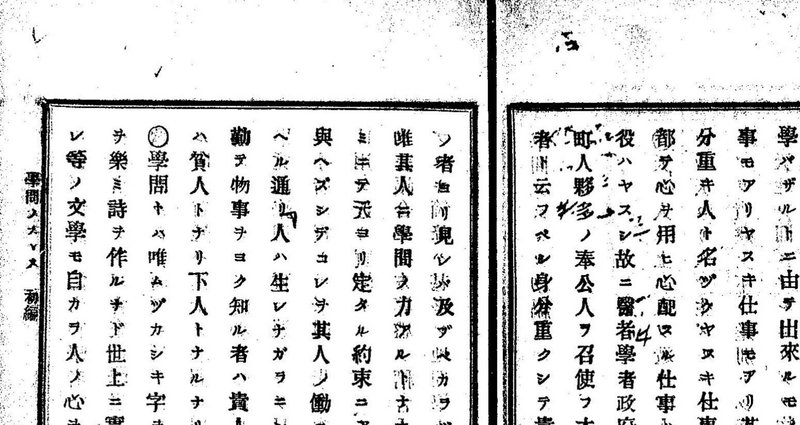 學バザルトニ由テ出來ルモ
事モアリヤスキ仕事モアリ其
分重キ人ト名ヅケヤスキ仕事
都テ心ヲ用ヒ心配スル仕事ト
役ハヤスシ故ニ醫者學者政府
町人夥多ノ奉公人ヲ召使フ大
者ト云フベル身分重クシテ貴
ノ者ヨリ見レバ及ブベカラザ
唯其人ニ學問ノ力アルトナ
ミニテ天ヨリ定タル約束ニア
與ヘズシテコレヲ其人ノ働
ベル通リ人ハ生レナガラニ
勤テ物事ヲヨク知ル者ハ貴人
ハ貧人トナリ下人トナルナリ
學問トハ唯ムヅカシキ字ヲ
ヲ樂ミ詩ヲ作ルナド世上ニ實
レ等ノ文學モ自カラ人ノ心ヲ
學問ノスヽメ 初編